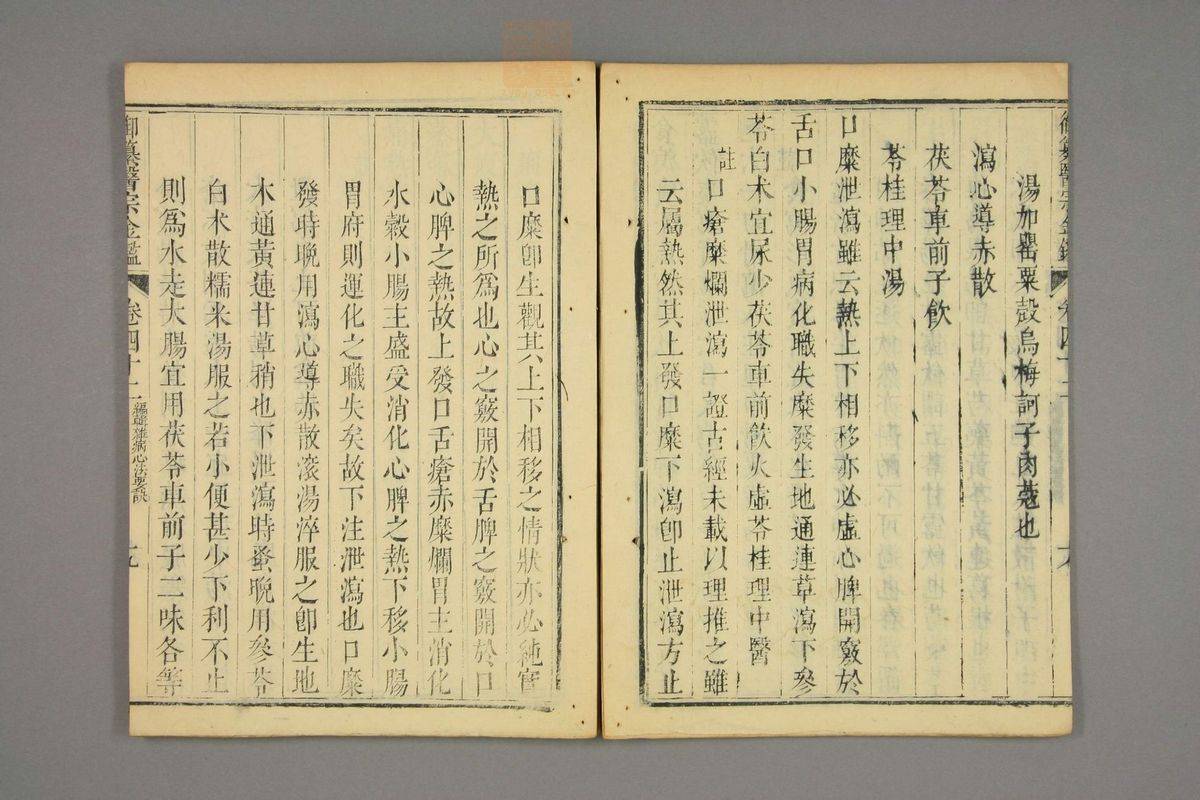 湯加罌粟殼烏梅訶子肉蔻也
瀉心導赤散
茯苓車前子飲
苓桂理中湯
口糜泄瀉雖云熱上下相移亦必虛心脾開竅於
舌口小腸胃病化職失糜發生地通連草瀉下參
苓白术宜尿少茯苓車前飲火虛苓桂理中醫
註口瘡糜爛泄瀉一證古經未載以理推之雖
云屬熱然其上發口糜下瀉卽止泄瀉方止
口糜卽生觀其上下相移之情狀亦必純實
熱之所爲也心之竅開於舌脾之竅開於口
心脾之熱故上發口舌瘡赤糜爛胃主消化
水穀小腸主盛受消化心脾之熱下移小腸
胃府則運化之職失矣故下注泄瀉也口糜
發時晚用瀉心導赤散滾湯淬服之卽生地
木通黃連甘草稍也下泄瀉時蚤晚用參苓
白术散糯米湯服之若小便甚少下利不止
則爲水走大腸宜用茯苓車前子二味各等
御纂醫宗金鑑 卷四十一 編輯雜病心法要訣